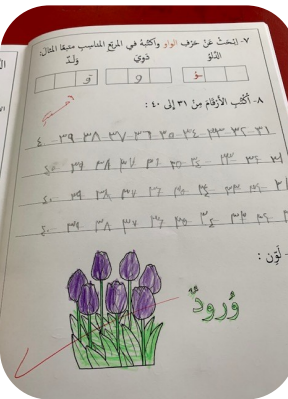 ٧- اِبْحَثْ عَنْ حَرْفِ الواو وَأَكْتُبُهُ في المربع المناسب متبعًا المثال:
الدَّلْوُ ذَوِيَ وَلَدٌ
ـوُ و وَ
٨- أَكْتُبُ الأَرْقامَ مِنْ ٣١ إلى ٤٠ :
٣١ ٣٢ ٣٣ ٣٤ ٣٥ ٣٦ ٣٧ ٣٨ ٣٩ ٤٠
٣١ ٣٢ ٣٣ ٣٤ ٣٥ ٣٦ ٣٧ ٣٨ ٣٩ ٤٠
٣١ ٣٢ ٣٣ ٣٤ ٣٥ ٣٦ ٣٧ ٣٨ ٣٩ ٤٠
٣٢ ٣٣ ٣٤ ٣٥ ٣٦ ٣٧ ٣٨ ٣٩ ٤٠
- لَوِّن :
وُرودٌ